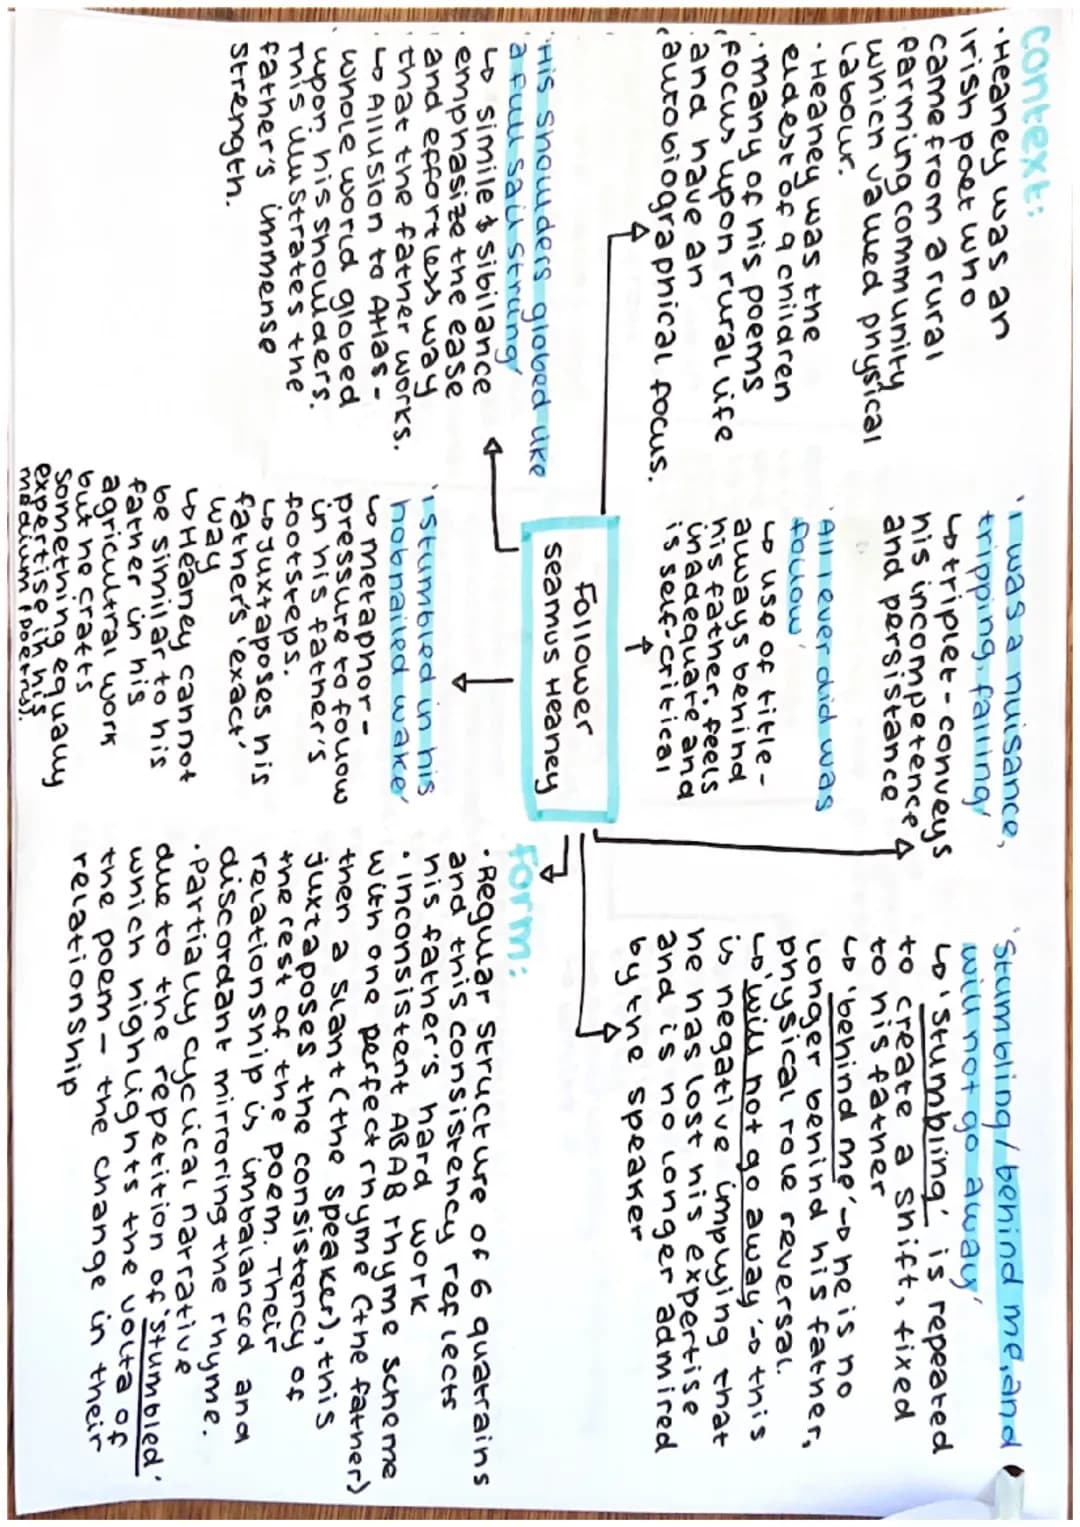 Context:
· Heaney was an
Irish poet who
came from a rural
farming community
which valued physical
labour.
· Heaney was the
eldest of 9 children
· many of his poems
focus upon rural life
and have an
autobiographical focus.
'I was a nuisance,
tripping, falling'
↳ triplet - conveys
his incompetence
and persistance
'All I ever did was
follow'
↳ use of title -
always behind
his father. feels
inadequate and
is self-critical
'Stumbling / behind me, and
will not go away'
↳ 'Stumbling' is repeated
to create a shift, fixed
to his father
↳ 'behind me' → he is no
longer behind his father,
physical role reversal.
↳ 'will not go away' → this
is negative implying that
he has lost his expertise
and is no longer admired
by the speaker
Follower
Seamus Heaney
'His shoulders globed like
a full sail strung'
↳ simile & sibilance
emphasize the ease
and effortless way
that the father works.
↳ Allusion to Atlas -
whole world globed
upon his shoulders.
this illustrates the
father's immense
strength.
'I stumbled in his
hobnailed wake'
↳ metaphor -
pressure to follow
in his father's
footsteps.
↳ Juxtaposes his
father's 'exact'
way
↳ Heaney cannot
be similar to his
father in his
agricultral work
but he crafts
something equally
expertise in his
medium (poetry).
Form:
· Regular structure of 6 quatrains
and this consistency reflects
his father's hard work
· Inconsistent ABAB rhyme scheme
with one perfect rhyme (the father)
then a slant (the speaker), this
juxtaposes the consistency of
the rest of the poem. Their
relationship is imbalanced and
discordant mirroring the rhyme.
· Partially cyclical narrative
due to the repetition of 'stumbled'
which highlights the volta of
the poem - the change in their
relationship